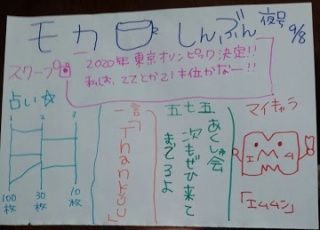 モカ しんぶん 夜号 9/8
スクープ
2020年 東京オリンピック決定!!
私は、22とか21才位かなー!!
占い☆
1 2 3
100枚 30枚 10枚
一言
「Thank YOU」
五七五
あくしゅ会
次もぜひ来て
まてるよ
マイキャラ
「エムムン」